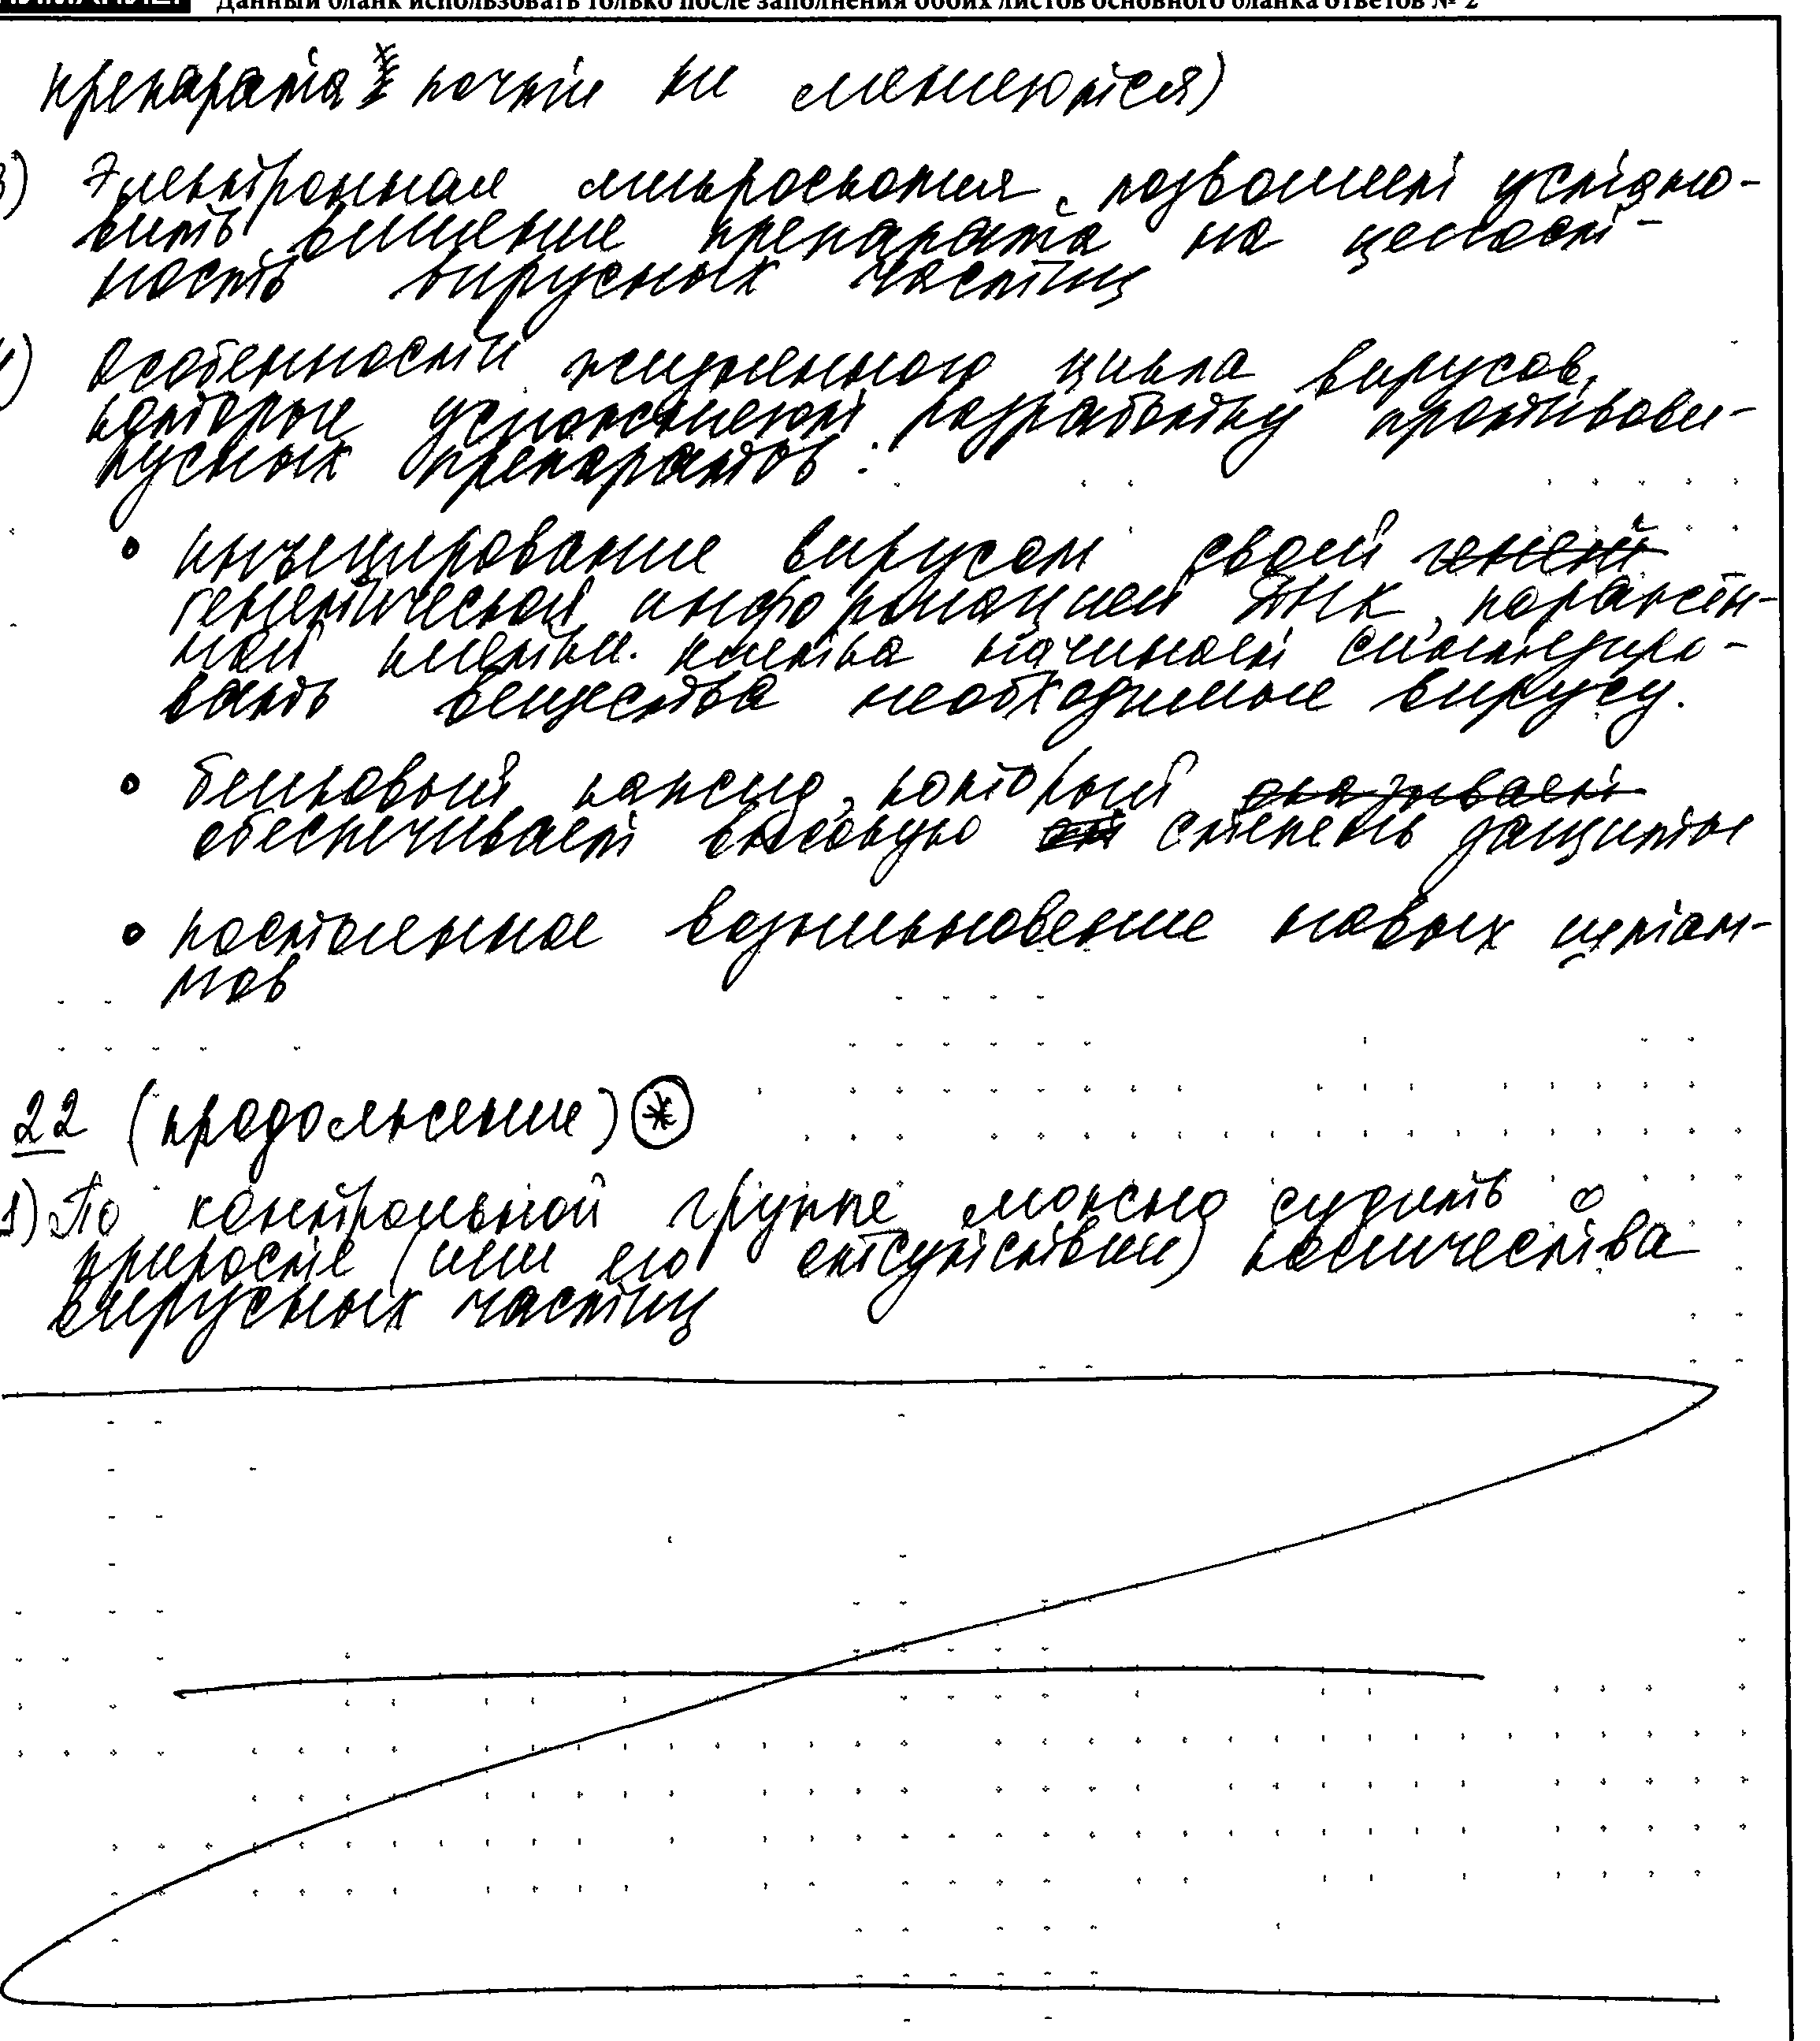 Данный бланк использовать только после заполнения обоих листов основного бланка ответов № 2
препарата почти не меняются)
3) Электронная микроскопия позволяет устано-
вить влияние препарата на целост-
ность вирусных частиц
4) Особенности жизненного цикла вирусов,
которые усложняют разработку противови-
русных препаратов:
• инъецирование вирусом своей геней
генетической информацией ДНК поражен-
ной клетки. клетка начинает синтезиро-
вать вещества необходимые вирусу.
• белковый капсид, который оказывает
обеспечивает высокую степень защиты
• постоянное возникновение новых штам-
мов
22 (продолжение) *
1) По контрольной группе можно судить о
приросте (или его отсутствии) количества
вирусных частиц